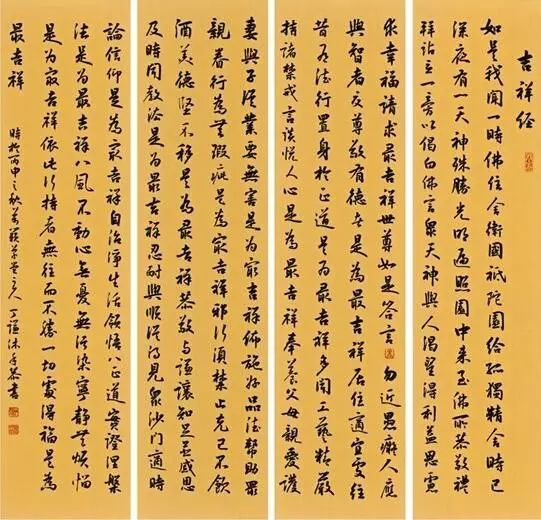 吉祥经
如是我聞一時佛住舍衛國祗陀園給孤獨精舍時已
深夜有一天神殊勝光明遍照園中來至佛所恭敬禮
拜站立一旁以偈白佛言眾天神與人渴望得利益思慮
求幸福請求最吉祥世尊如是答言勿近愚癡人應
與智者交尊敬有德者是為最吉祥居住適宜處往
昔有德行置身於正道是為最吉祥多聞工藝精嚴
持諸禁戒言談悅人心是為最吉祥奉養父母親愛護
妻與子從業要無害是為最吉祥佈施好品德幫助眾
親眷行為無瑕疵是為最吉祥邪行須禁止克己不飲
酒美德堅不移是為最吉祥恭敬與謙讓知足並感恩
及時聞教法是為最吉祥忍耐與順從得見眾沙門適時
論信仰是為最吉祥自治淨生活領悟八正道實證涅槃
法是為最吉祥八風不動心無憂無污染寧靜無煩惱
是為最吉祥依此行持者無往而不勝一切處得福是為
最吉祥 時於丙申之秋草堂主人丁謹沐手恭書